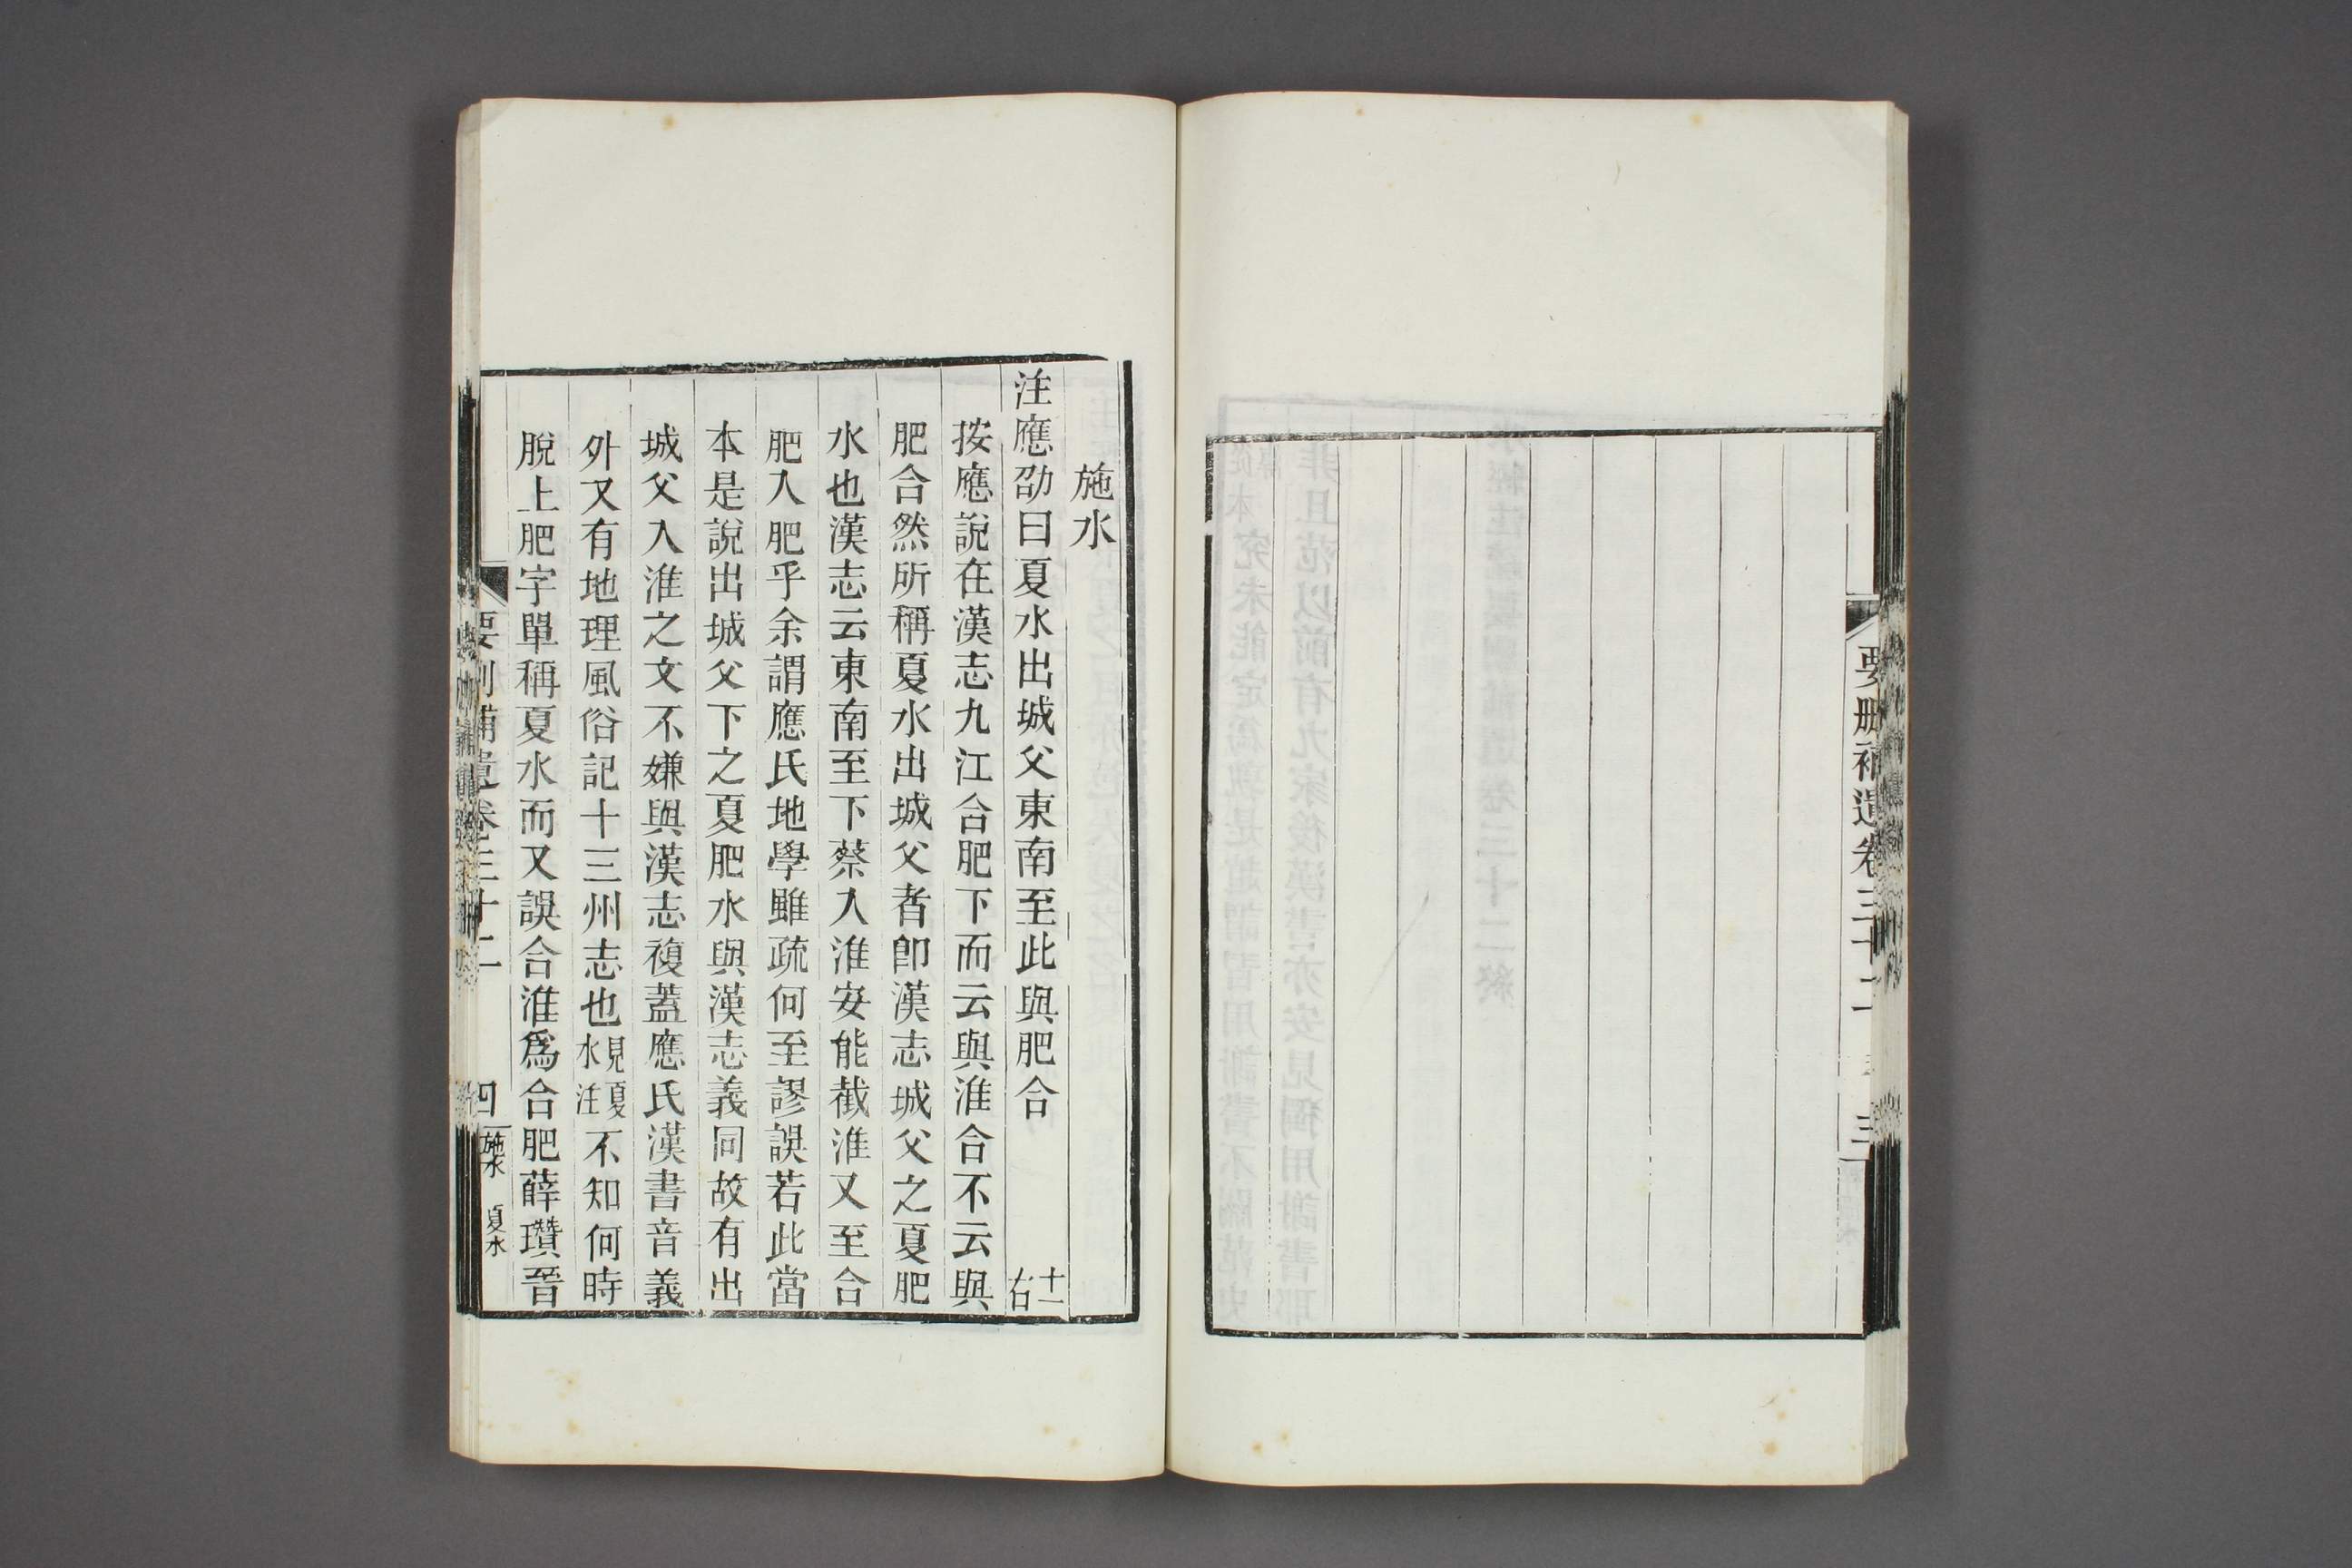 要刪補遺卷三十二
三
施水
注應劭曰夏水出城父東南至此與肥合 十一右
按應說在漢志九江合肥下而云與淮合不云與
肥合然所稱夏水出城父者卽漢志城父之夏肥
水也漢志云東南至下蔡入淮安能截淮又至合
肥入肥乎余謂應氏地學雖疏何至謬誤若此當
本是說出城父下之夏肥水與漢志義同故有出
城父入淮之文不嫌與漢志複蓋應氏漢書音義
外又有地理風俗記十三州志也見夏水注不知何時
脫上肥字單稱夏水而又誤合淮爲合肥薛瓚晉
要刪補遺卷三十二
四
施水 夏水